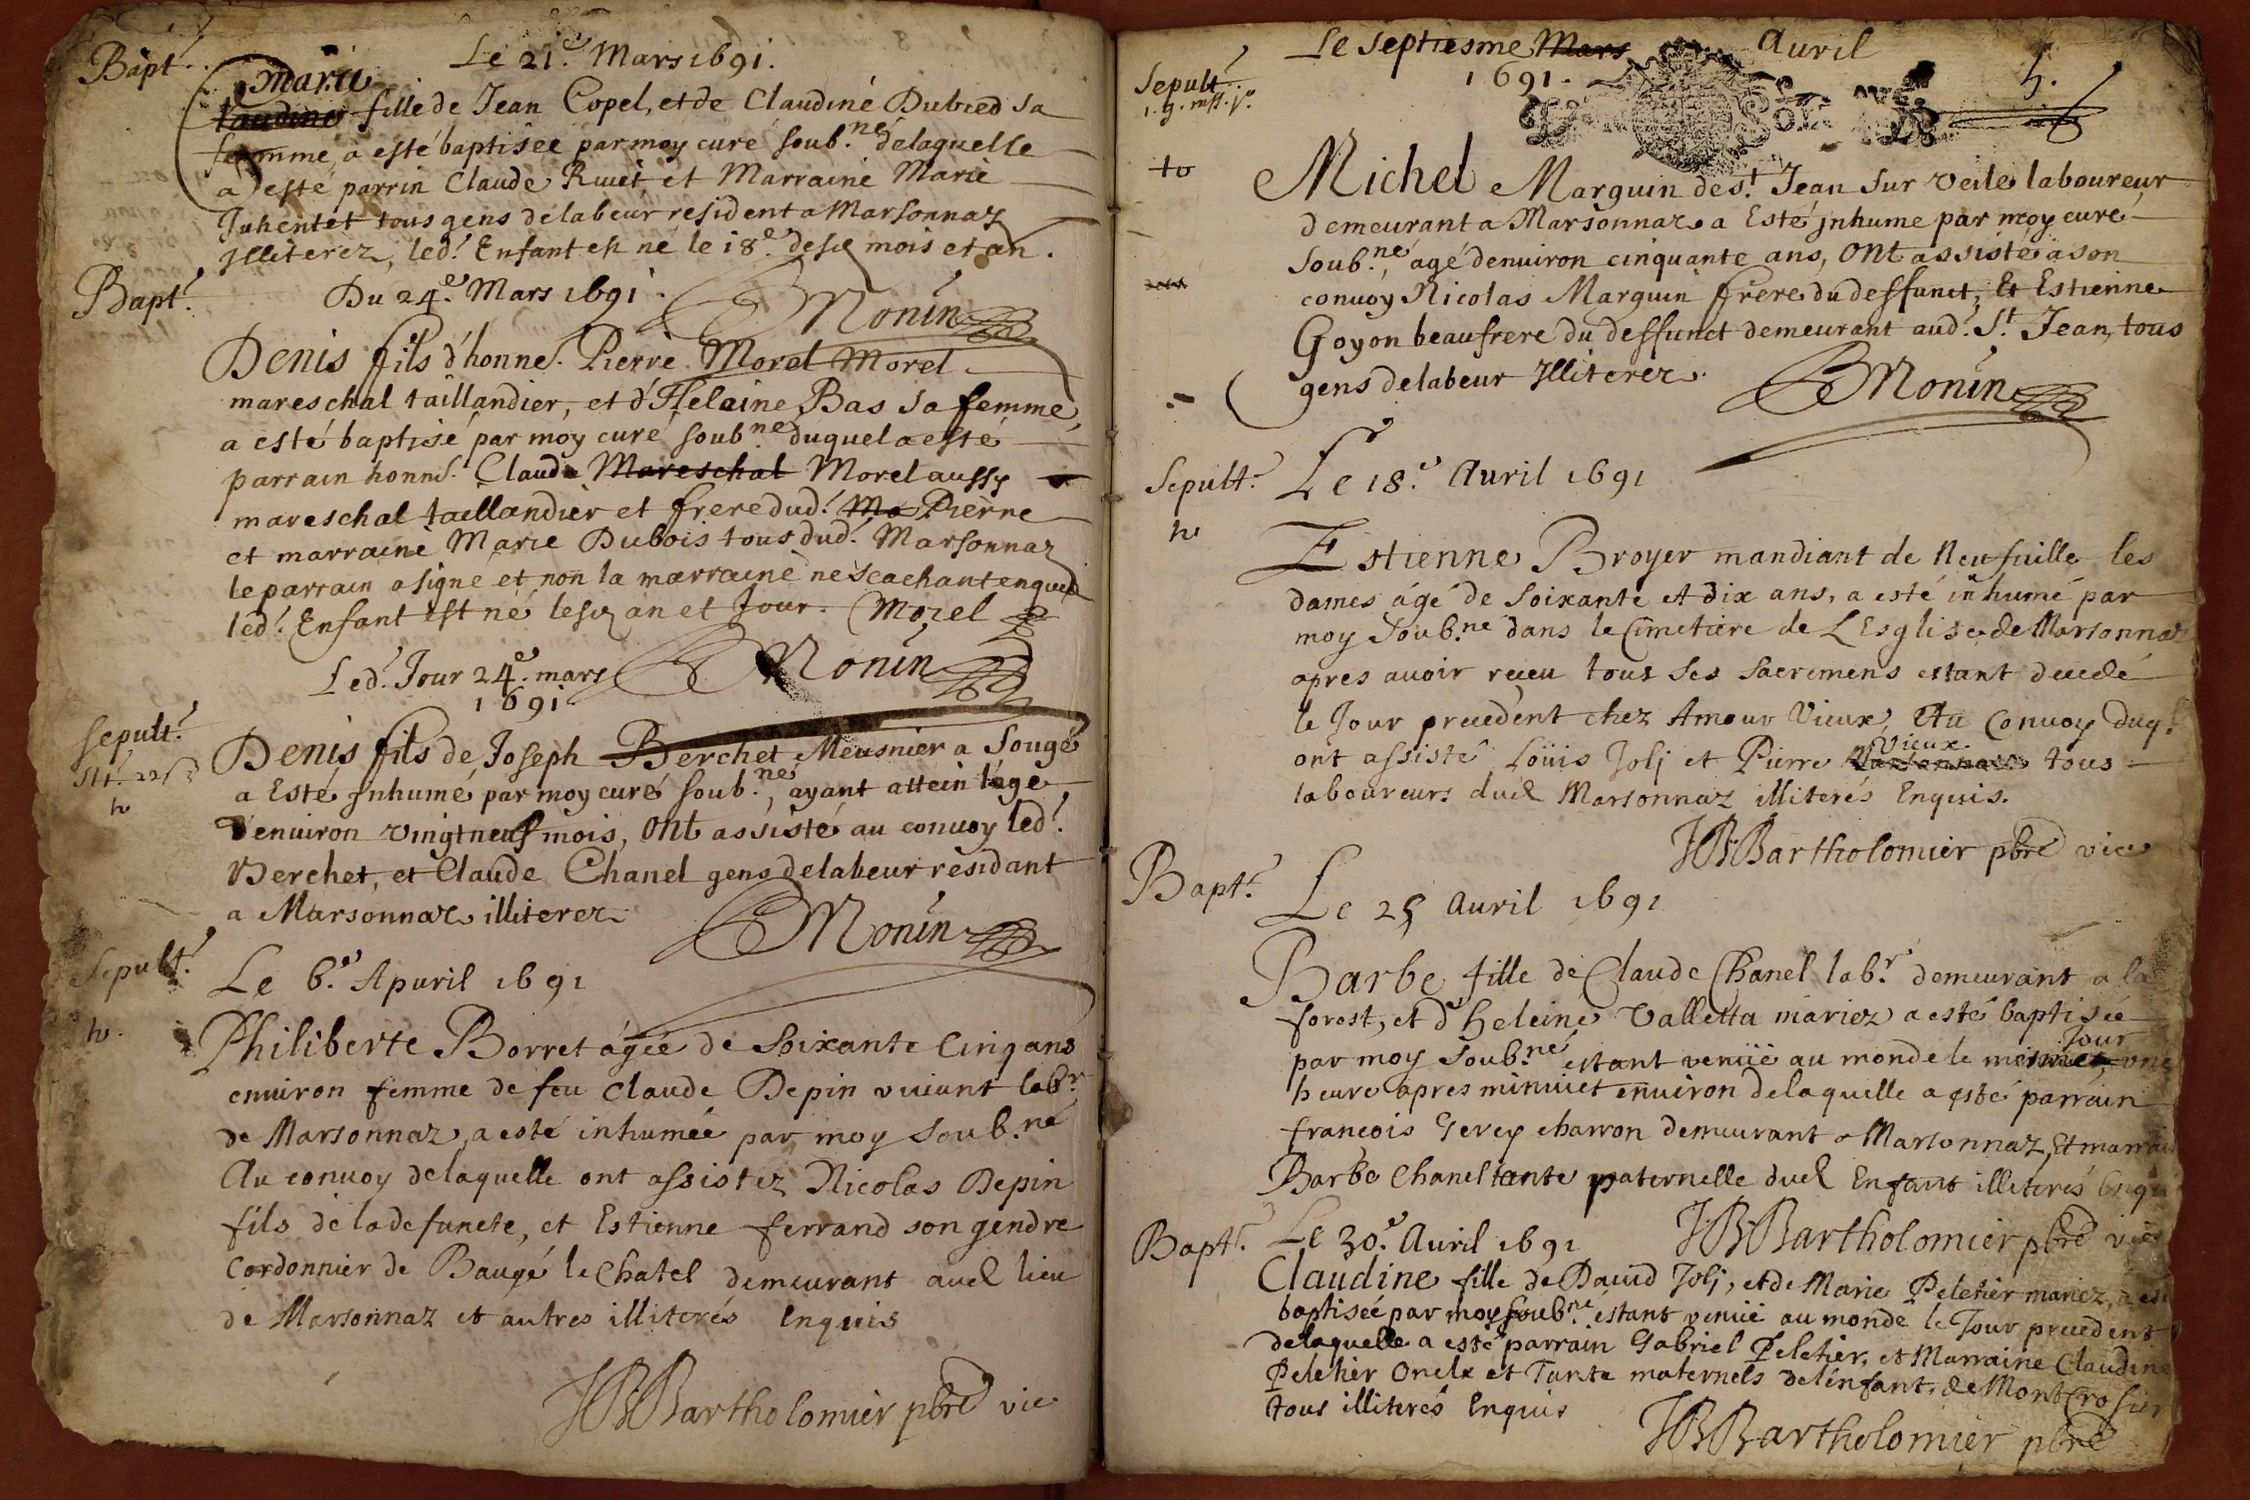 Bapt.
Le 21.e Mars 1691.
Marie
fille de Jean Copel, et de Claudine Dubied sa
femme, a esté baptisée par moy curé soub.né delaquelle
a esté parrin Claude et Marraine Marie
tous gens delabeur resident a Marsonnaz
Illiterez, led.t Enfant est né le 18.e desd mois et an.
Bapt.t
Du 24.e Mars 1691.
Monin
Denis fils d'honnes. Pierre Morel Morel
mareschal taillandier, et d'Helaine Bas sa femme,
a esté baptisé par moy curé soub.né duquel a esté
parrain honnes. Claude Mareschal Morel aussy
mareschal taillandier et frere dud.t Ma Pierre
et marraine Marie Dubois tous dud.t Marsonnaz
le parrain a signé et non la marraine ne scachant enquis
led.t Enfant est né lesd an et Jour. Morel
Led.t Jour 24.e mars
1691
Monin
Sepult.t
Denis fils de Joseph Berchet Meusnier a Sougé
a Esté Inhumé par moy curé soub.né, ayant attein l'age
d'enuiron vingt neuf mois, Ont assisté au conuoy led.t
Berchet, et Claude Chanel gens delabeur residant
a Marsonnaz illiterez
Monin
Sepult.t
Le 6.e Apuril 1691
h.
Philiberte Borret agée de Soixante Cinq ans
enuiron femme de feu Claude Depin viuant lab.r
de Marsonnaz, a esté inhumée par moy Soub.né
Au conuoy delaquelle ont assistez Nicolas Depin
fils de la defuncte, et Estienne ferrand son gendre
Cordonnier de Baugé le Chatel demeurant aud lieu
de Marsonnaz et autres illiterés Enquis
JBBartholomier pbre vic
Le Septiesme Mars Auril
1691.
5.
Sepult.t
Michel Marguin de S.t Jean sur veile laboureur
demeurant a Marsonnaz a Esté Inhume par moy curé
Soub.né, agé denuiron cinquante ans, Ont assisté a son
conuoy Nicolas Marguin frere du deffunct, Et Estienne
Goyon beaufrere du deffunct demeurant aud.t S.t Jean, tous
gens delabeur Illiterez.
Monin
Sepult.t
Le 18.e Auril 1691
h
Estienne Broyer mandiant de Neufuille les
dames agé de Soixante et dix ans, a esté inhumé par
moy Soub.né dans le Cimetiere de L'Esglise de Marsonnaz
apres auoir receu tous Ses Sacremens estant decedé
le Jour precedent chez Amour Vieux, Au Conuoy duq.l
Vieux
ont assisté Loüis Jolj et Pierre tous
laboureurs dud Marsonnaz illiterés Enquis.
JBBartholomier pbre vic
Bapt.t
Le 25 Auril 1691
Barbe fille de Claude Chanel lab.r demeurant a la
forest, et d'heleine Valletta mariez a esté baptisée
Jour
par moy Soub.né estant venüe au monde le mesme une
heure apres minuict enuiron delaquelle a esté parrain
francois Gerey charron demeurant a Marsonnaz, Et marrai
Barbe Chanel tante paternelle dud Enfant illiterés Enqu
JBBartholomier pbre vic
Bapt.t
Le 30.e Auril 1691
Claudine fille de Dauid Jolj, et de Marie Peletier mariez, a esté
baptisée par moy soub.né estant venüe au monde le Jour precedent
delaquelle a esté parrain Gabriel Peletier, et Marraine Claudine
Peletier Oncle et Tante maternels del'enfant, de Montcrosier
tous illiterés Enquis
JBBartholomier pbre